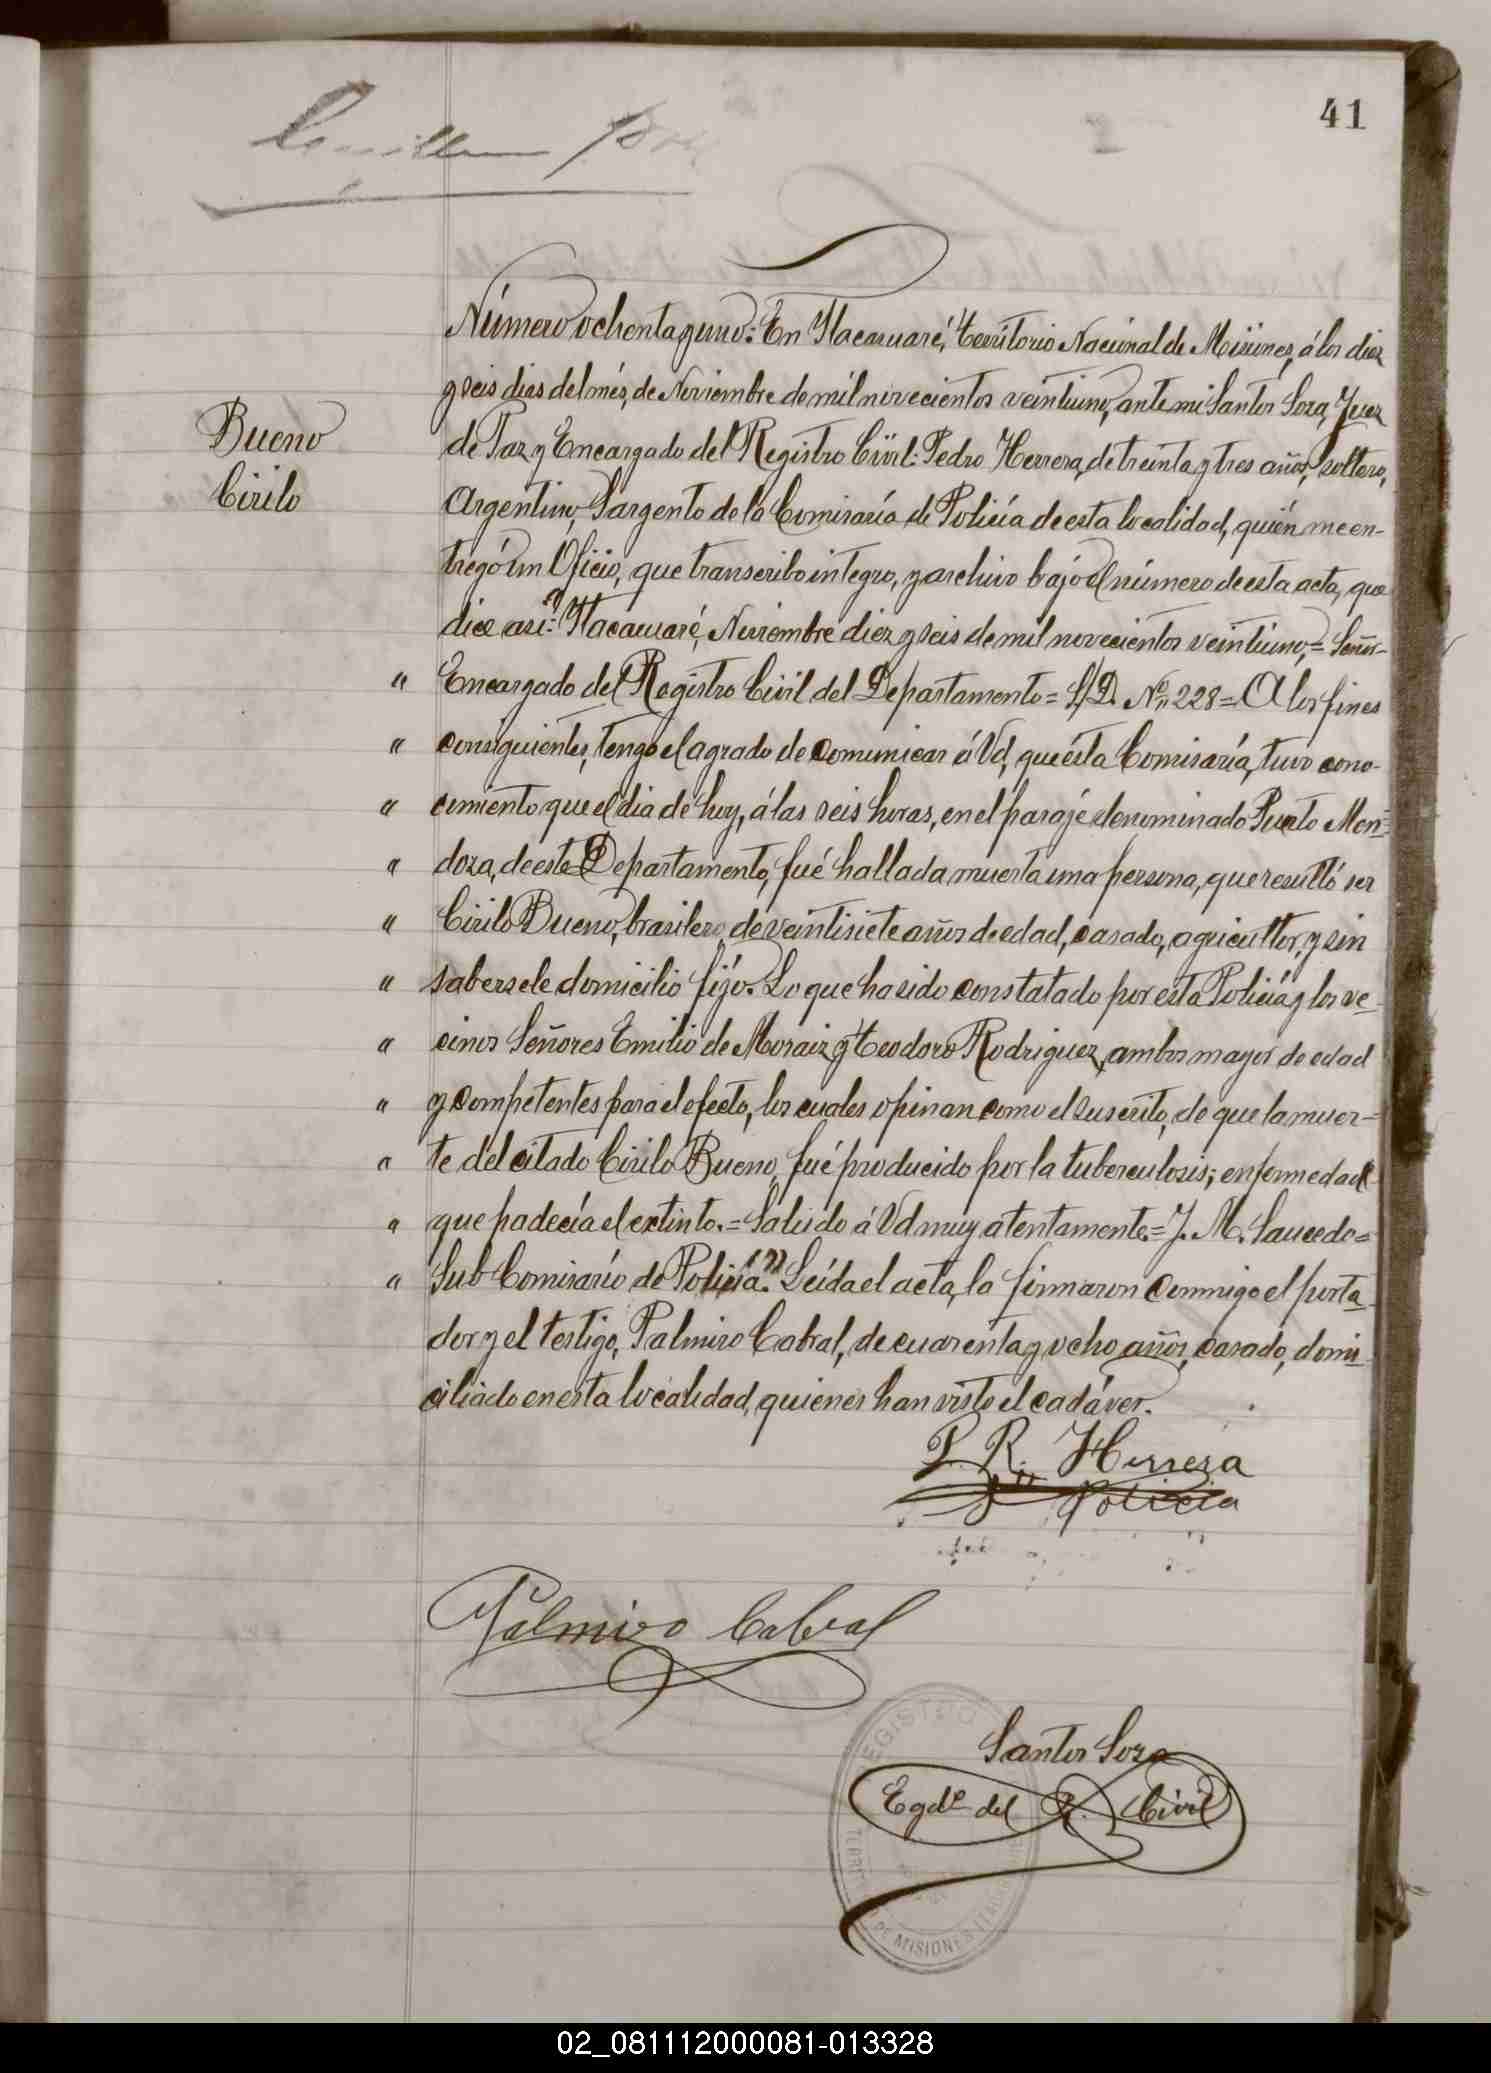 41
Número ochenta y uno: En Itacaruaré, Territorio Nacional de Misiones, á los diez
y seis dias del més, de Noviembre de mil novecientos veintiuno, ante mi Santos Soza, Juez
de Paz y Encargado del Registro Civil: Pedro Herrera, de treinta y tres años, soltero,
Bueno
Cirilo
Argentino, Sargento de la Comisaría de Policía de esta localidad, quién me en-
tregó un Oficio, que transcribo integro, y archivo bajo el número de esta acta, que
dice asi: "Itacaruaré, Noviembre diez y seis de mil novecientos veintiuno,= Señor-
" Encargado del Registro Civil del Departamento= S/D. Nº 228= A los fines
" consiguientes, tengo el agrado de comunicar á Vd, que ésta Comisaría, tuvo cono-
" cimiento que el dia de hoy, á las seis horas, en el paraje denominado Puerto Men-
" doza, de este Departamento, fué hallada muerta una persona, que resultó ser
" Cirilo Bueno, brasilero, de veintisiete años de edad, casado, agricultor, y sin
" sabersele domicilio fijo. Lo que ha sido constatado por esta Policía y los ve-
" cinos Señores Emilio de Moraiz y Teodoro Rodriguez, ambos mayor de edad
" y competentes para el efecto, los cuales opinan como el suscrito, de que la muer=
" te del citado Cirilo Bueno, fué producido por la tuberculosis; enfermedad
" que padecía el extinto.= Saludo á Vd muy atentamente.= J. M. Saucedo=
" Sub Comisario de Policía." Leída el acta, la firmaron conmigo el porta-
dor y el testigo, Palmiro Cabral, de cuarenta y ocho años, casado, domi-
ciliado en esta localidad, quienes han visto el cadáver.
P. R. Herrera
Policia
Palmiro Cabral
Santos Soza
Egdo del R. Civil
REGISTRO
DE MISIONES
02_081112000081-013328